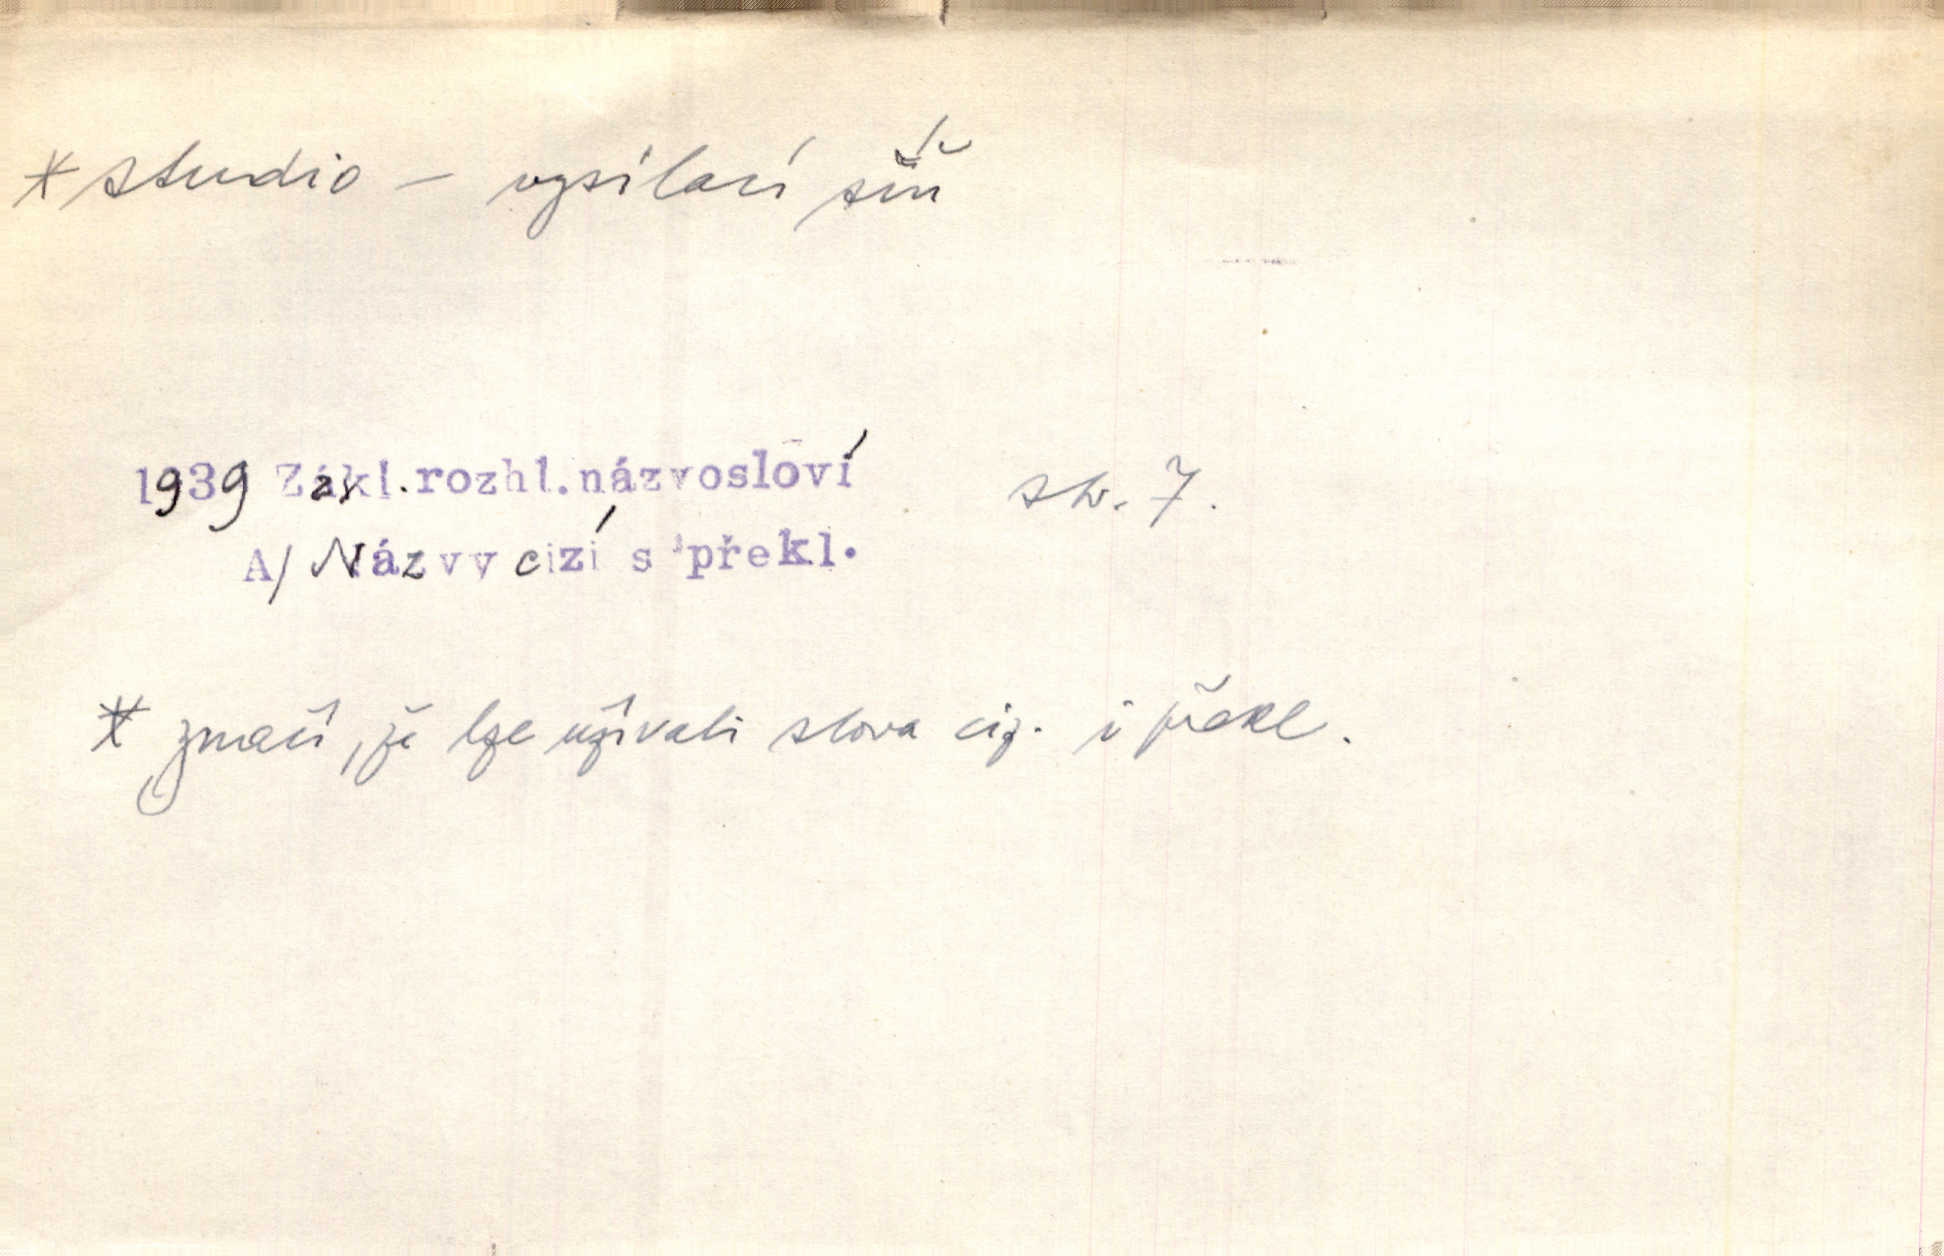 * studio – vysílací síň
1939 Zákl. rozhl. názvosloví str. 7.
A/ Názvy cizí s překl.
* značí, že lze užívati slova ciz. i překl.